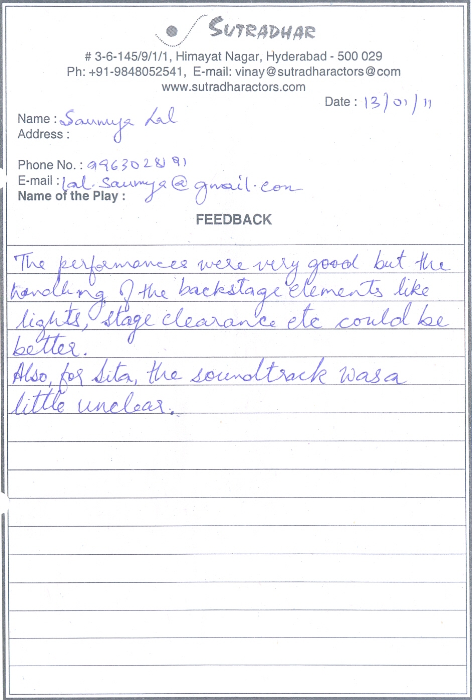 SUTRADHAR
# 3-6-145/9/1/1, Himayat Nagar, Hyderabad - 500 029
Ph: +91-9848052541, E-mail: vinay@sutradharactors@com
www.sutradharactors.com
Date : 13/01/11
Name : Saumya Lal
Address :
Phone No. :
E-mail : lal.saumya@gmail.com
Name of the Play :
FEEDBACK
The performances were very good but the
handling of the backstage elements like
lights, stage clearance etc could be
better.
Also, for Sita, the soundtrack was a
little unclear.